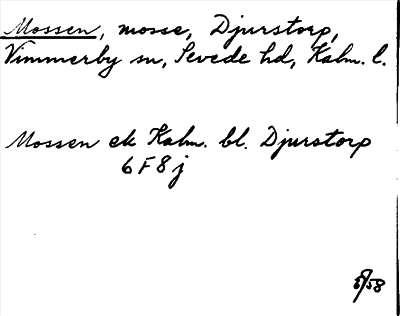 Mossen, mosse, Djurstorp,
Vimmerby sn, Sevede hd, Kalm. l.
Mossen ek Kalm. bl. Djurstorp
6 F 8 j